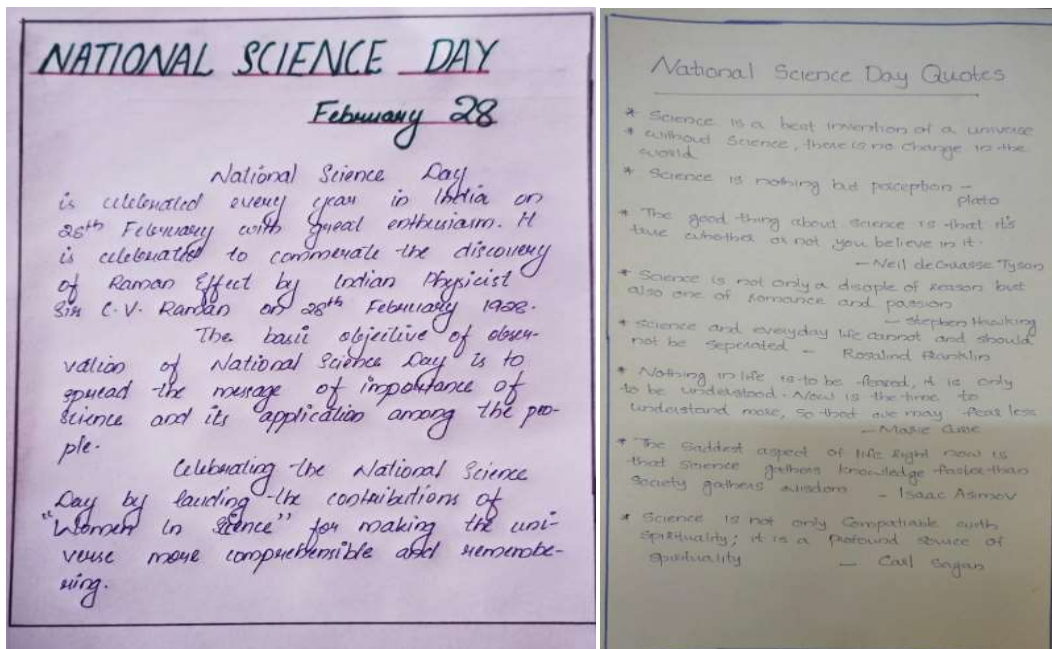 NATIONAL SCIENCE DAY
February 28
National Science Day
is celebrated every year in India on
28th February with great enthusiasm. It
is celebrated to commerate the discovery
of Raman Effect by Indian Physicist
Sir C.V. Raman on 28th February 1928.
The basic objective of obser-
vation of National Science Day is to
spread the message of importance of
science and its application among the peo-
ple.
Celebrating the National Science
Day by lauding the contributions of
"Women in Science" for making the uni-
verse more comprehensible and remembe-
ring.
National Science Day Quotes
* Science is a beat invention of a universe
* without science, there is no change in the
world
* Science is nothing but perception –
plato
* The good thing about science is that it's
true whether or not you believe in it.
– Neil deGrasse Tyson
* Science is not only a disciple of reason but
also one of romance and passion
– Stephen Hawking
* Science and everyday life cannot and should
not be seperated – Rosalind Franklin
* Nothing in life is to be feared, it is only
to be understood. Now is the time to
understand more, so that we may fear less
– Marie Curie
* The Saddest aspect of life Right now is
that science gathers knowledge faster than
society gathers wisdom – Isaac Asimov
* Science is not only Compatiable with
Spirituality; it is a profound source of
spirituality – Carl Sagan